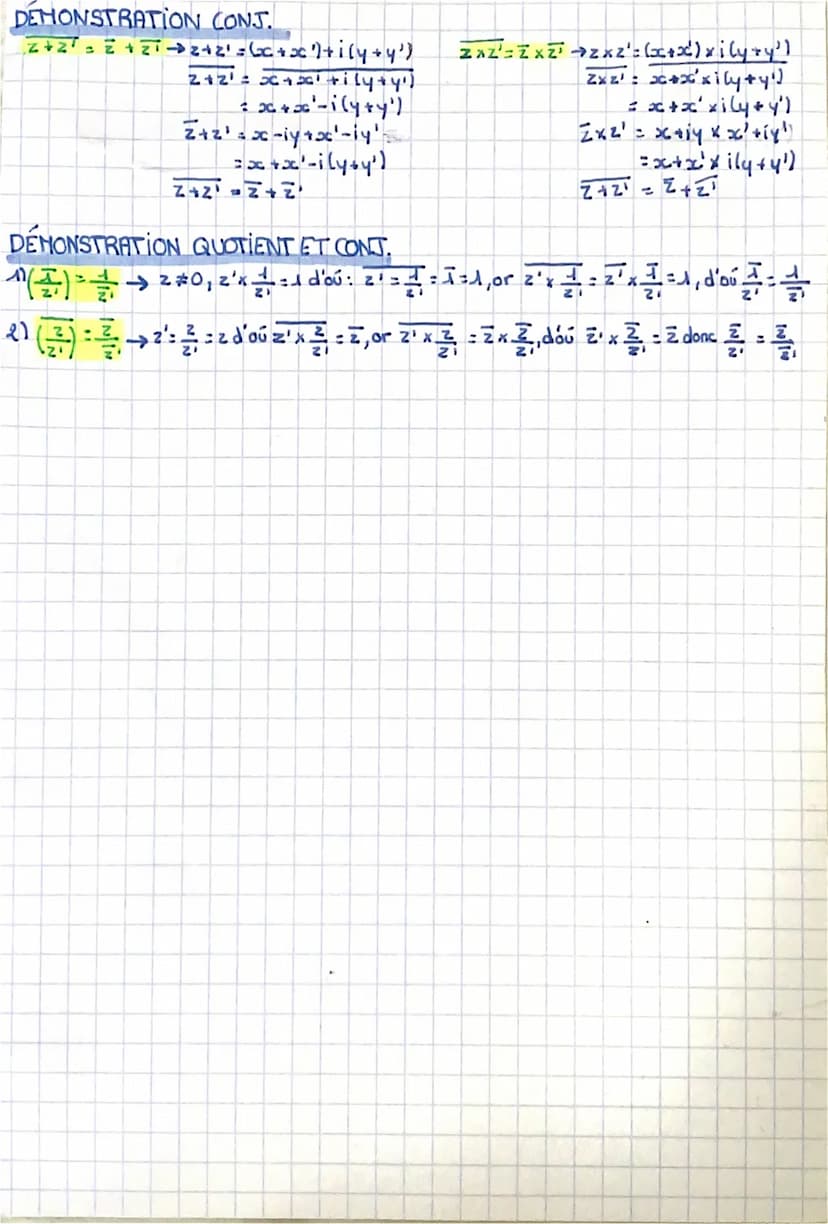 DÉMONSTRATION CONJ.
$\overline{z+z'} = \overline{z} + \overline{z'}$ → z+z' = (x+x')+i(y+y')
$\overline{z+z'} = \overline{x+x'+i(y+y')}$
= x+x'-i(y+y')
$\overline{z}$+z' = x-iy+x'-iy'
= x+x'-i(y+y')
$\overline{z+z'} = \overline{z}+\overline{z}'$
$\overline{z×z'} = \overline{z}×\overline{z'}$ → z×z' = (x+x')×i(y+y')
$\overline{z×z'} = \overline{x+x'×i(y+y')}$
= x+x'×i(y+y')
$\overline{z}$×z' = x+iy × x'+iy'
= x+x'×i(y+y')
$\overline{z+z'} = \overline{z}+\overline{z'}$
DÉMONSTRATION QUOTIENT ET CONJ.
1) $\overline{\left(\frac{1}{z'}\right)} = \frac{1}{\overline{z'}}$ → z≠0, z'×$\frac{1}{z'}$=1 d'où: $\overline{z' = \frac{1}{z'}} = \overline{1}$=1, or $\overline{z'×\frac{1}{z'}} = \overline{z'}×\frac{\overline{1}}{z'}$=1, d'où $\frac{\overline{1}}{z'} = \frac{1}{\overline{z'}}$
2) $\overline{\left(\frac{z}{z'}\right)} = \frac{\overline{z}}{\overline{z'}}$ → z'=$\frac{z}{z'}$=z d'où $\overline{z'×\frac{z}{z'}} = \overline{z}$, or $\overline{z'×\frac{z}{z'}} = \overline{z}×\frac{\overline{z}}{z'}$, d'où $\overline{z}'×\frac{\overline{z}}{z'} = \overline{z}$ donc $\frac{\overline{z}}{z'} = \frac{\overline{z}}{\overline{z'}}$